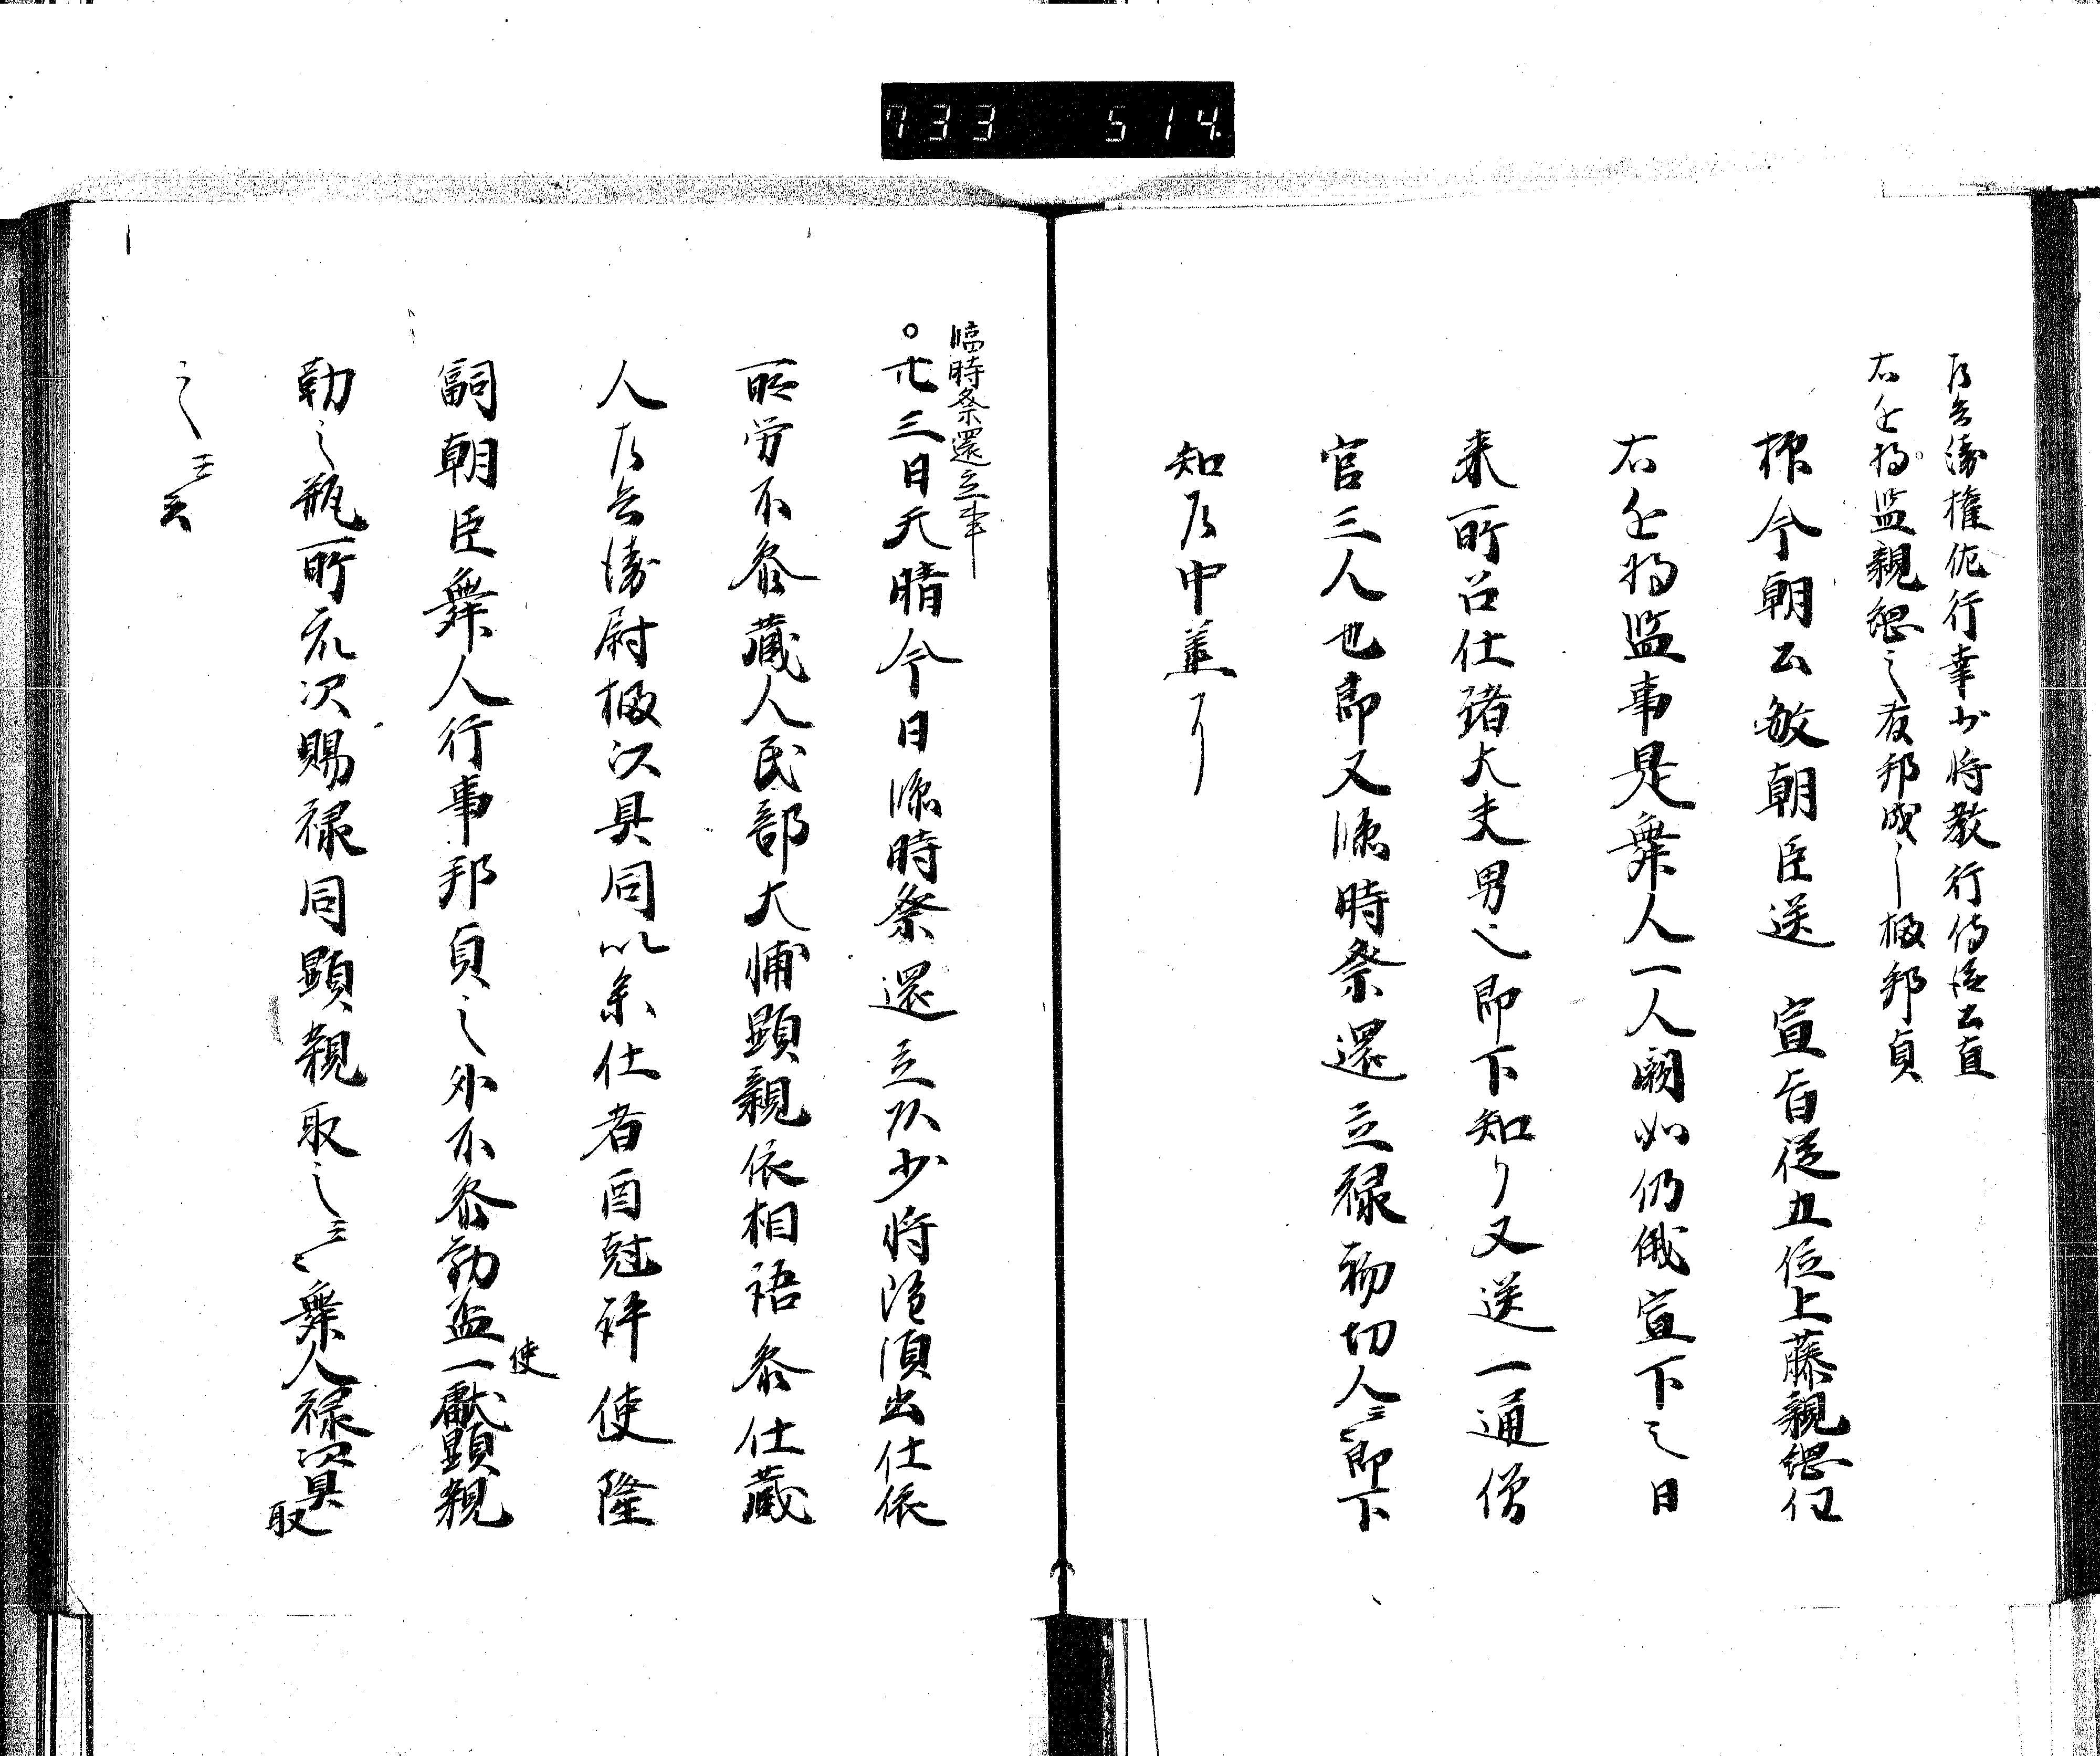 733 514
左兵衛権佐行幸少将教行侍従公直
右近将監親継之友邦成〻極邦貞
抑今朝公敏朝臣送 宣旨従五位上藤親継任
右近将監事是舞人一人闕如仍俄宣下之日
来所召仕諸大夫男也即下知了又送一通僧
官三人也即又臨時祭還立禄物切人々即下
知左中弁了
臨時祭還立事
。廿三日天晴今日臨時祭還立頭少将隆須出仕依
所労不参蔵人民部大輔顕親依相語参仕蔵
人左兵衛尉極以具同以参仕者酉剋許使隆
嗣朝臣舞人行事邦貞之外不参勧盃一献使顕親
勤之瓶所衆次賜禄同顕親取之云々舞人禄以具取
之云々